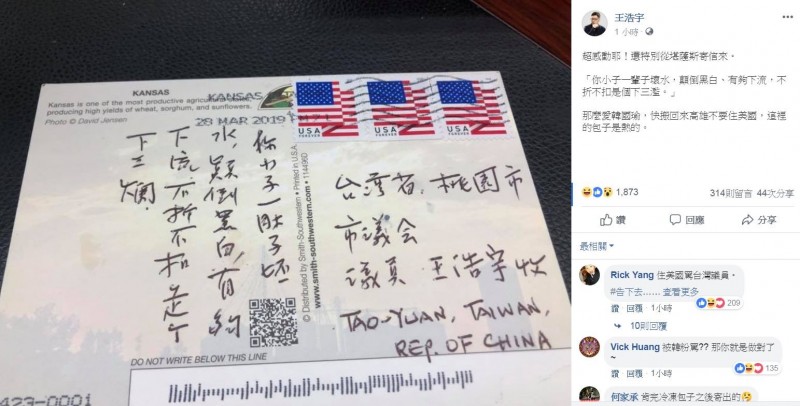 KANSAS
Kansas is one of the most productive agricultural
producing high yields of wheat, sorghum, and sunflowers.
Photo © David Jensen
KANSAS
28 MAR 2019
USA
FOREVER
USA
FOREVER
USA
FOREVER
你小子一肚子坏
水,顛倒黑白,有夠
下流,不折不扣是个
下三爛.
© Distributed by Smith-Southwestern • Printed in U.S.A.
www.smith-southwestern.com • 1144960
台灣省,桃園市
市議会
議員 王浩宇 收
TAO-YUAN, TAIWAN,
REP. OF CHINA
DO NOT WRITE BELOW THIS LINE
423-0001
王浩宇
1 小時
超感動耶！還特別從堪薩斯寄信來。
「你小子一輩子壞水，顛倒黑白、有夠下流，不
折不扣是個下三濫。」
那麼愛韓國瑜，快搬回來高雄不要住美國，這裡
的包子是熱的。
1,873
314則留言 44次分享
讚
回應
分享
最相關
Rick Yang 住美國罵台灣議員。
#告下去…… 查看更多
209
讚 · 回覆 · 1小時
10則回覆
Vick Huang 被韓粉罵?? 那你就是做對了
~
135
讚 · 回覆 · 1小時
何家承 肯完冷凍包子之後寄出的